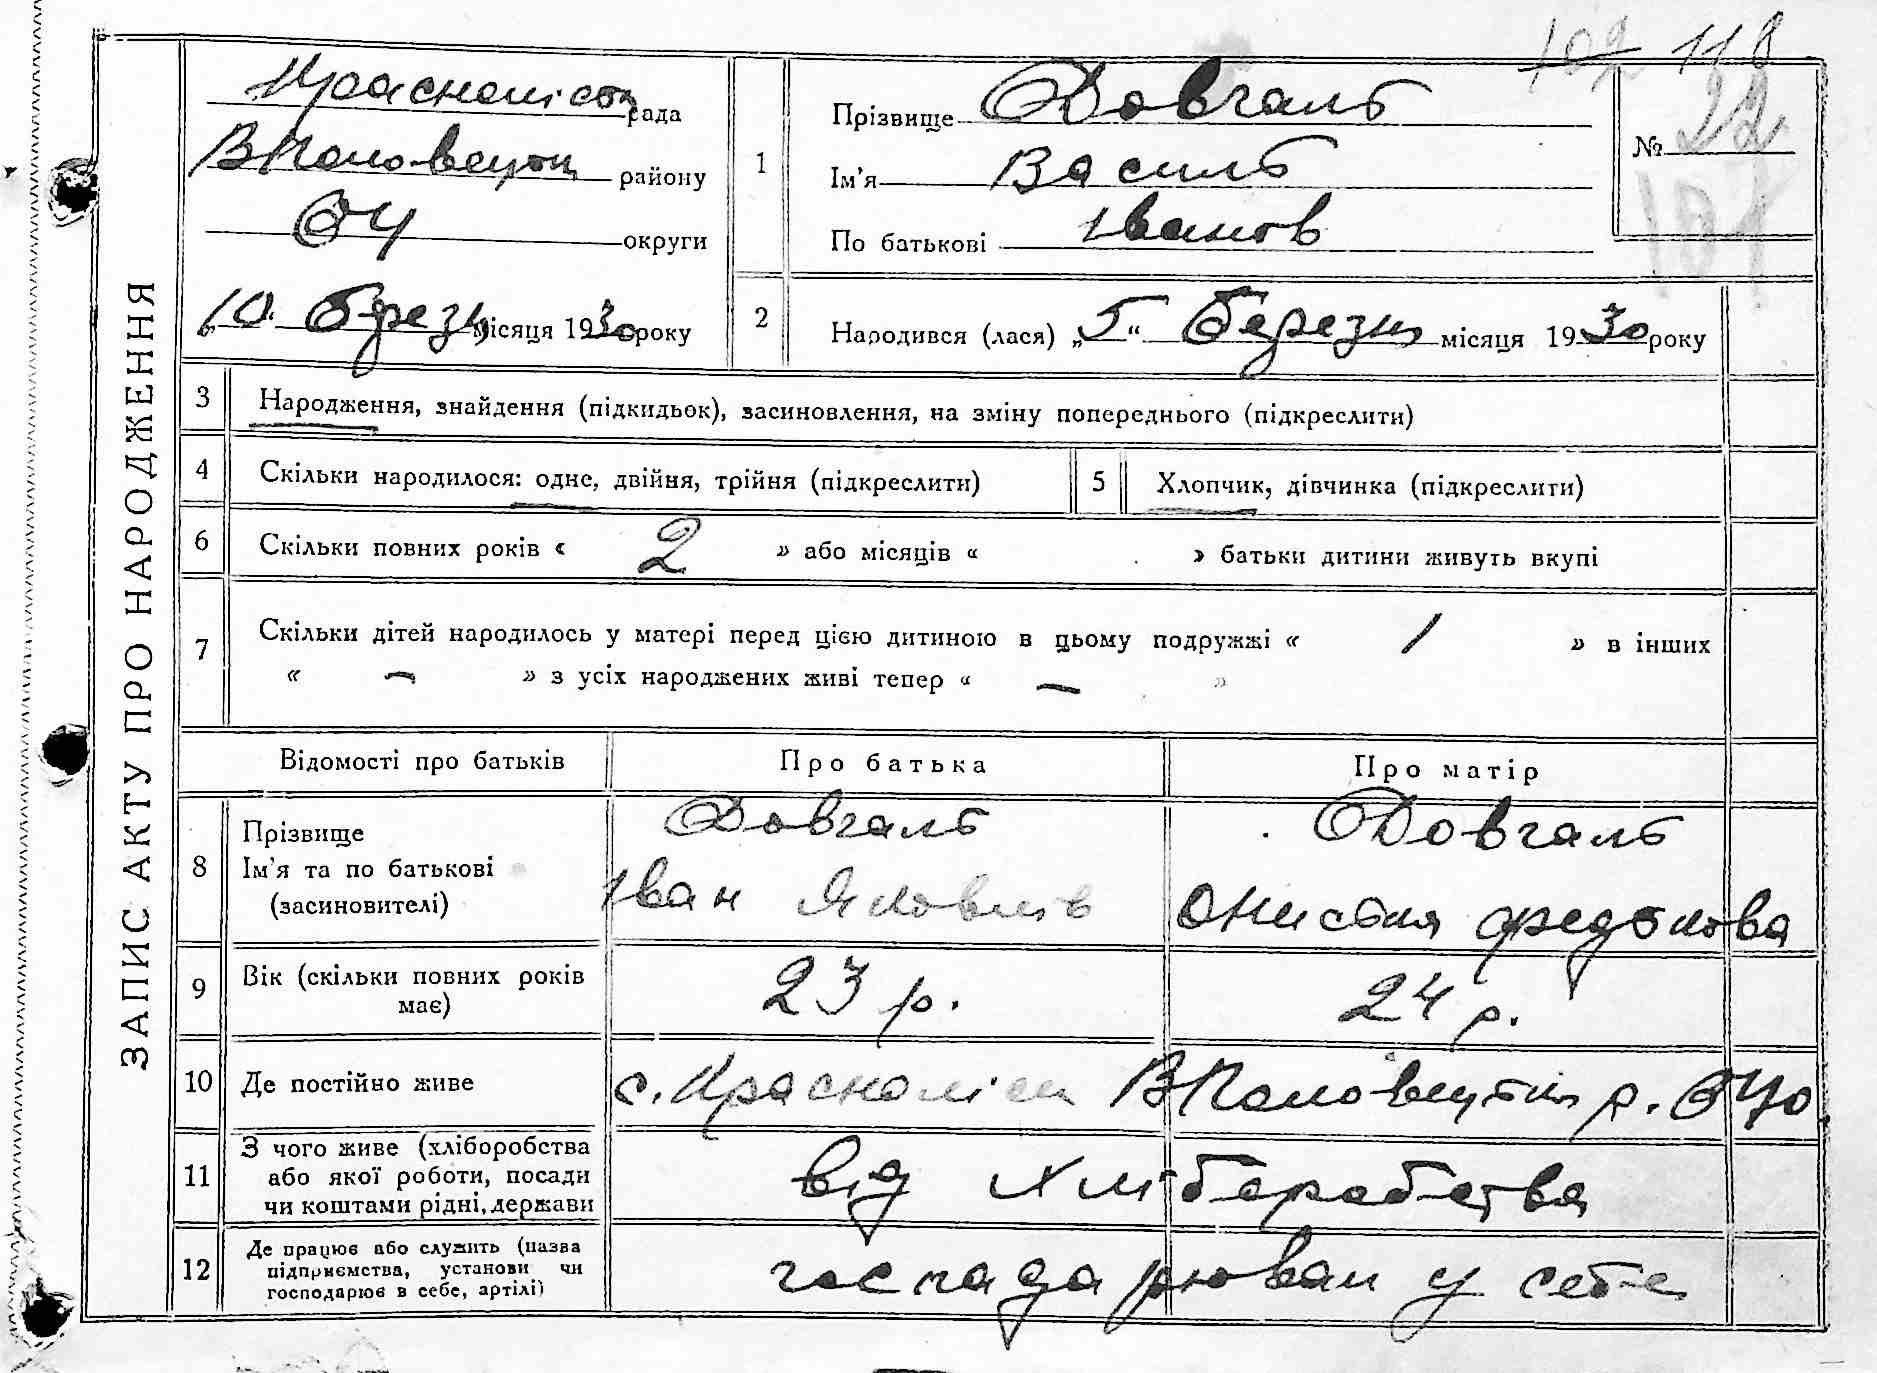 102 118
ЗАПИС АКТУ ПРО НАРОДЖЕННЯ
Краснопіськ рада
району
округи
„10“ березня місяця 1930 року
1
Прізвище Довгаль
Ім’я Василь
По батькові Іванов
№ 22
107
2
Народився (лася) „5“ березня місяця 1930 року
3 Народження, знайдення (підкидьок), засиновлення, на зміну попереднього (підкреслити)
4 Скільки народилося: одне, двійня, трійня (підкреслити)
5 Хлопчик, дівчинка (підкреслити)
6 Скільки повних років « 2 » або місяців « » батьки дитини живуть вкупі
7 Скільки дітей народилось у матері перед цією дитиною в цьому подружжі « 1 » в інших
« — » з усіх народжених живі тепер « — »
Відомості про батьків Про батька Про матір
8 Прізвище
Ім’я та по батькові
(засиновителі)
Довгаль
Іван Яковлів
Довгаль
Онисія Федокова
9 Вік (скільки повних років
має)
23 р.
24 р.
10 Де постійно живе
с.
р.
11 З чого живе (хліборобства
або якої роботи, посади
чи коштами рідні, держави
від хліборобства
12 Де працює або служить (назва
підприємства, установи чи
господарює в себе, артілі)
господарюван у себе